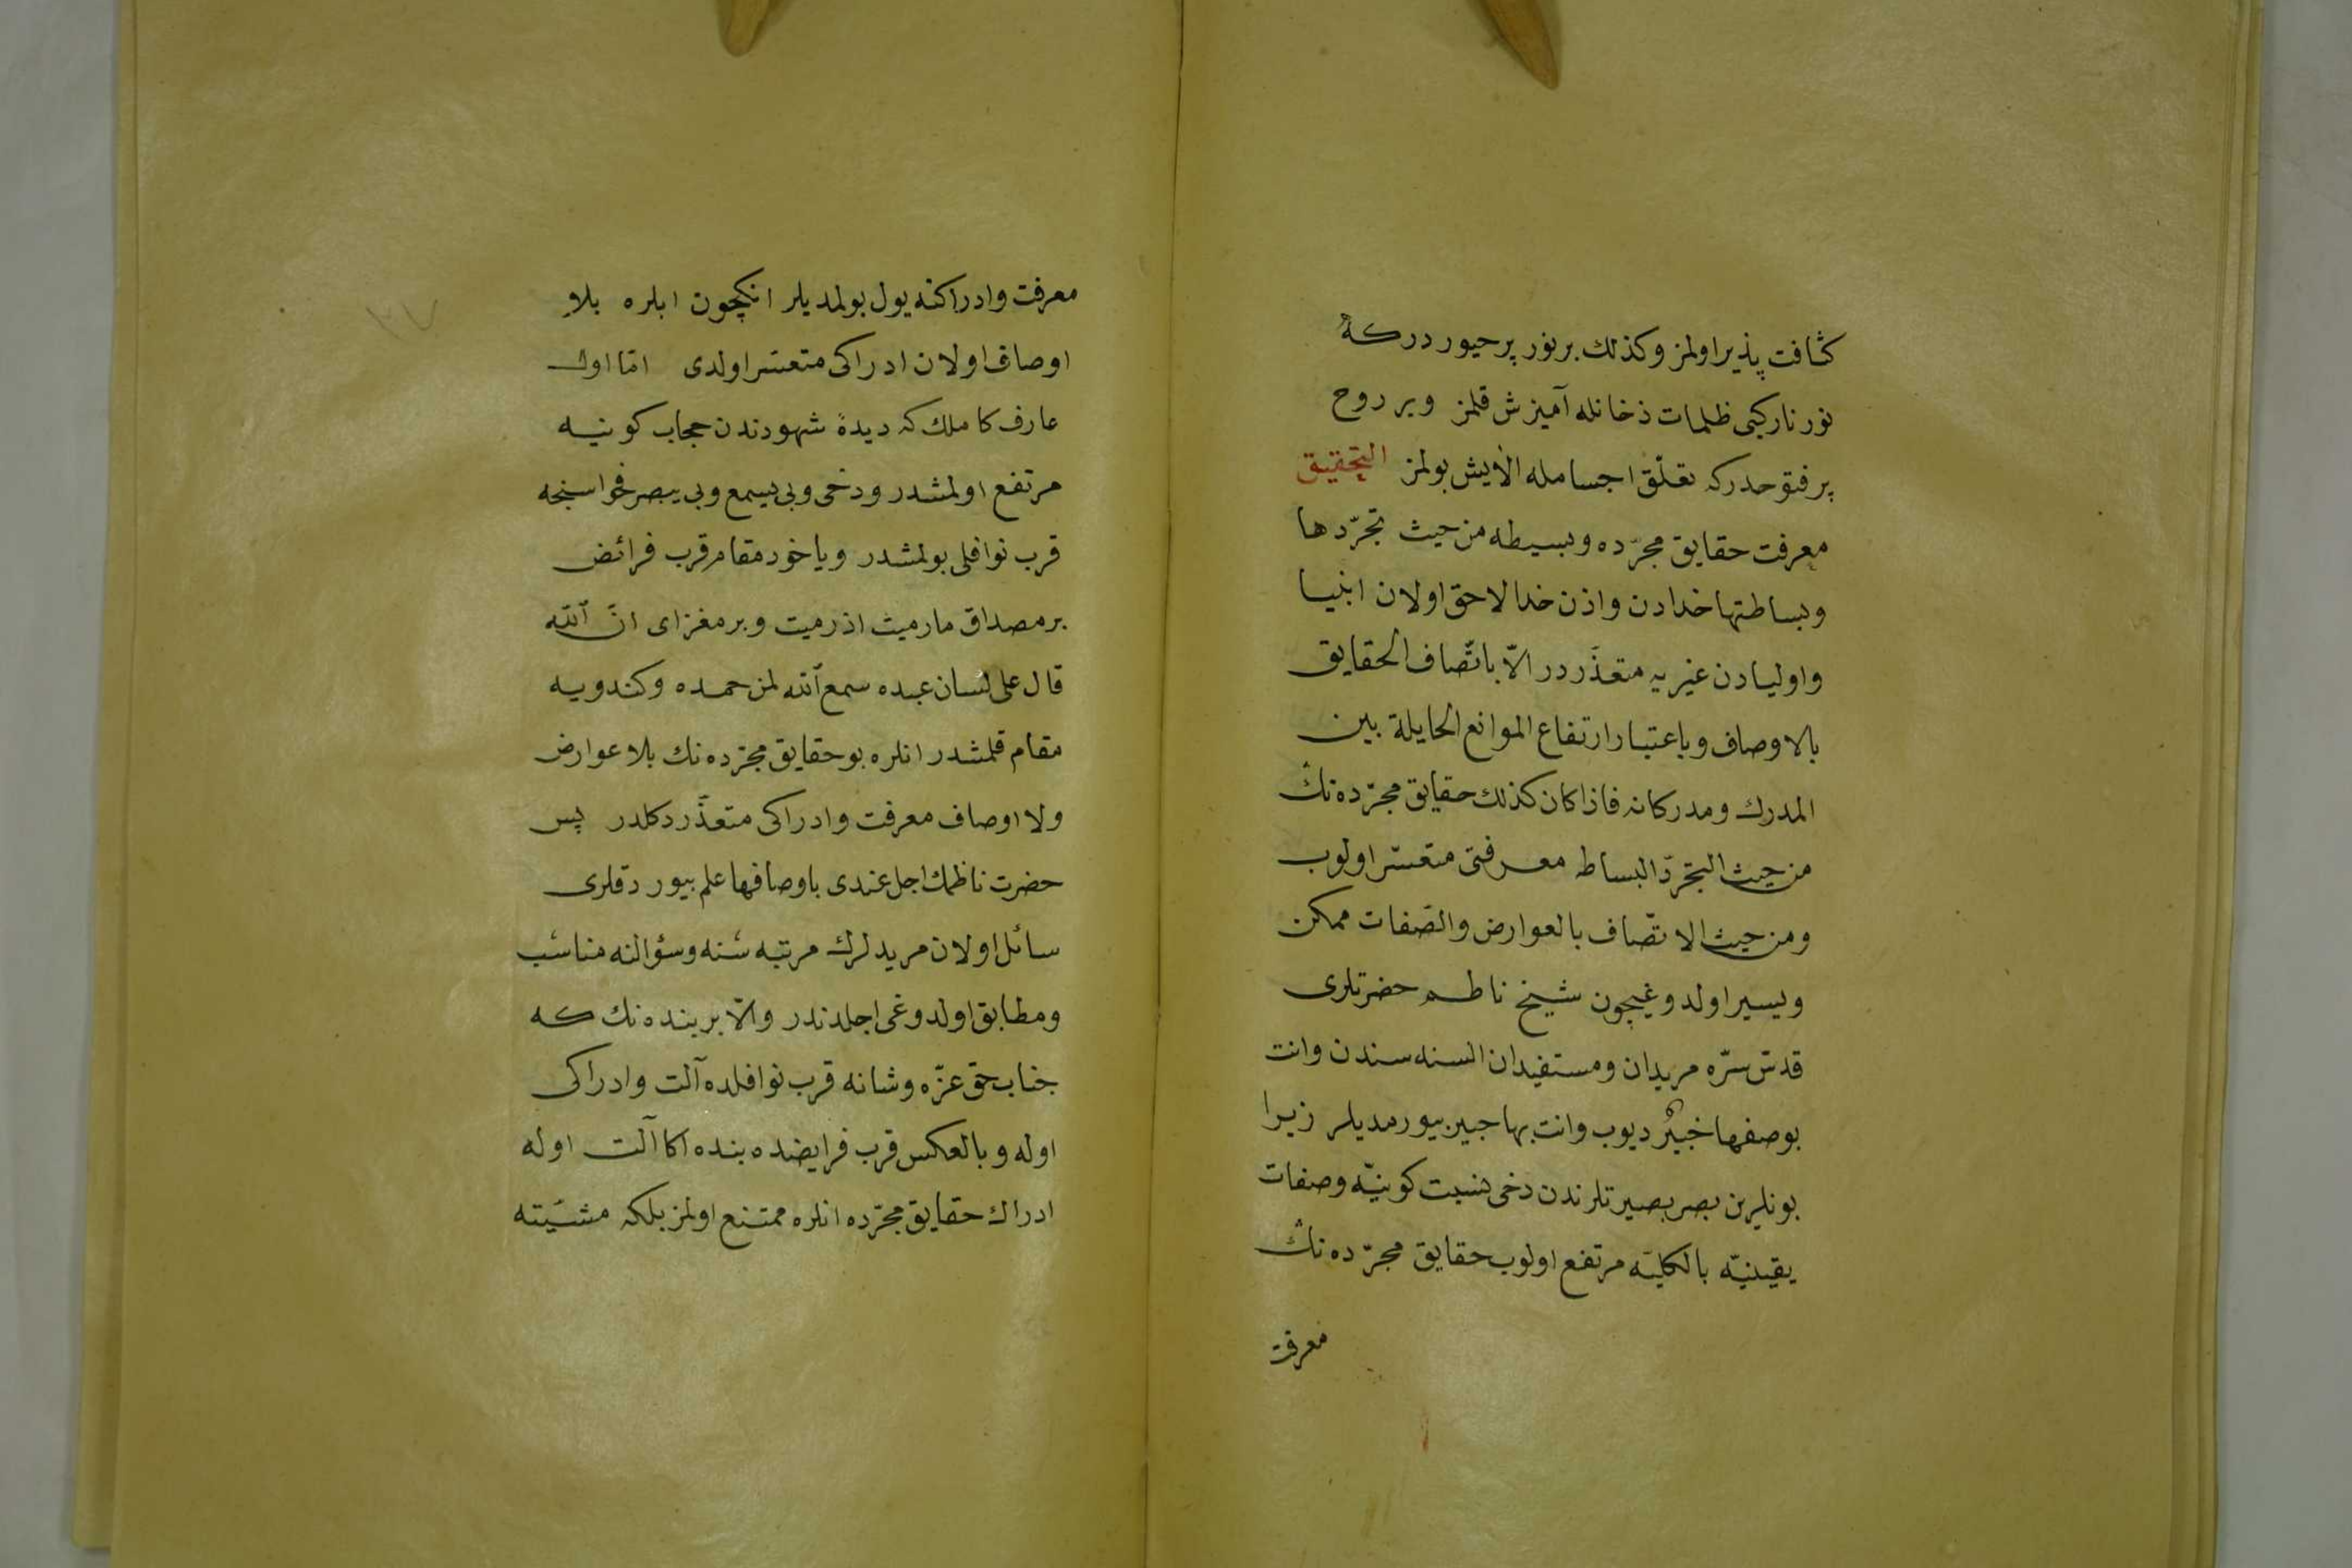 كثافت پذیر اولمز وكذلك بر نور پر حیور درکه
نور نار کبی ظلمات دخانله آمیزش قلمز وبر روح
پر فتوحدرکه تعلّق اجسامله الایش بولمز التحقیق
معرفت حقایق مجرّده وبسیطه من حیث تجرّدها
وبساطتها خدادن واذن خدا لاحق اولان انبیا
واولیادن غیریه متعذّردر الاّ باتّصاف الحقایق
بالاوصاف وباعتبار ارتفاع الموانع الحایلة بین
المدرك ومدركاته فاذا كان كذلك حقایق مجرّده نك
من حیث التجرّد البساط معرفتی متعسّر اولوب
ومن حیث الاتّصاف بالعوارض والصّفات ممكن
ویسیر اولدوغیچون شیخ ناظم حضرتلری
قدّس سرّه مریدان ومستفیدان السنه سندن وانت
بوصفها خبیرٌ دیوب وانت بها خبیر بیورمدیلر زیرا
بونلرین بصر بصیرتلرندن دخی نسبت كونیّه وصفات
یقینیّه بالكلیّه مرتفع اولوب حقایق مجرّده نك
معرفت
معرفت وادراكنه یول بولمدیلر انكچون ابلره بلا
اوصاف اولان ادراكی متعسّر اولدی امّا اول
عارف كاملك كه دیدهٔ شهودندن حجاب كونیه
مرتفع اولمشدر ودخی وبی یسمع وبی یبصر فحواسنجه
قرب نوافلی بولمشدر ویاخود مقام قرب فرائض
بر مصداق مارمیت اذ رمیت وبر مغزای انّ الله
قال علی لسان عبده سمع الله لمن حمده وكندویه
مقام قلمشدر انلره بو حقایق مجرّده نك بلا عوارض
ولا اوصاف معرفت وادراكی متعذّر دكلدر پس
حضرت ناظمك اجل عندی باوصافها علم بیوردقلری
سائل اولان مریدلرك مرتبه سنه وسؤالنه مناسب
ومطابق اولدوغی اجلدندر والاّ بر بنده نك كه
جناب حق عزّه وشانه قرب نوافلده آلت وادراكی
اوله وبالعكس قرب فرایضده بنده اكا آلت اوله
ادراك حقایق مجرّده انلره ممتنع اولمز بلكه مشیّته